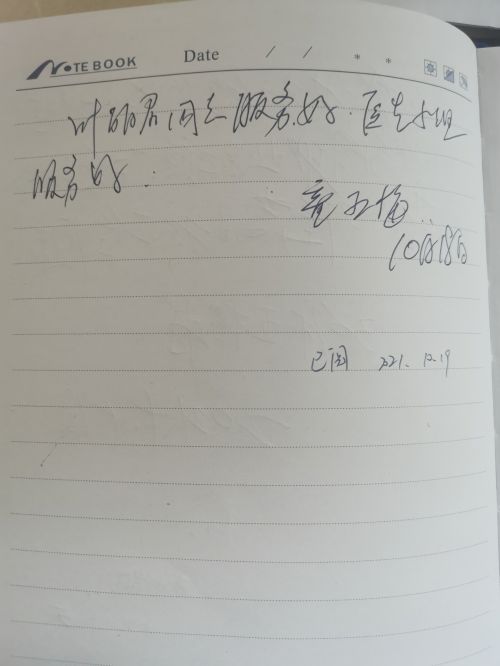 NOTEBOOK Date / / * *
叶丽君同志服务好.医生护理
服务好.
10月18日
已阅 2021.10.19